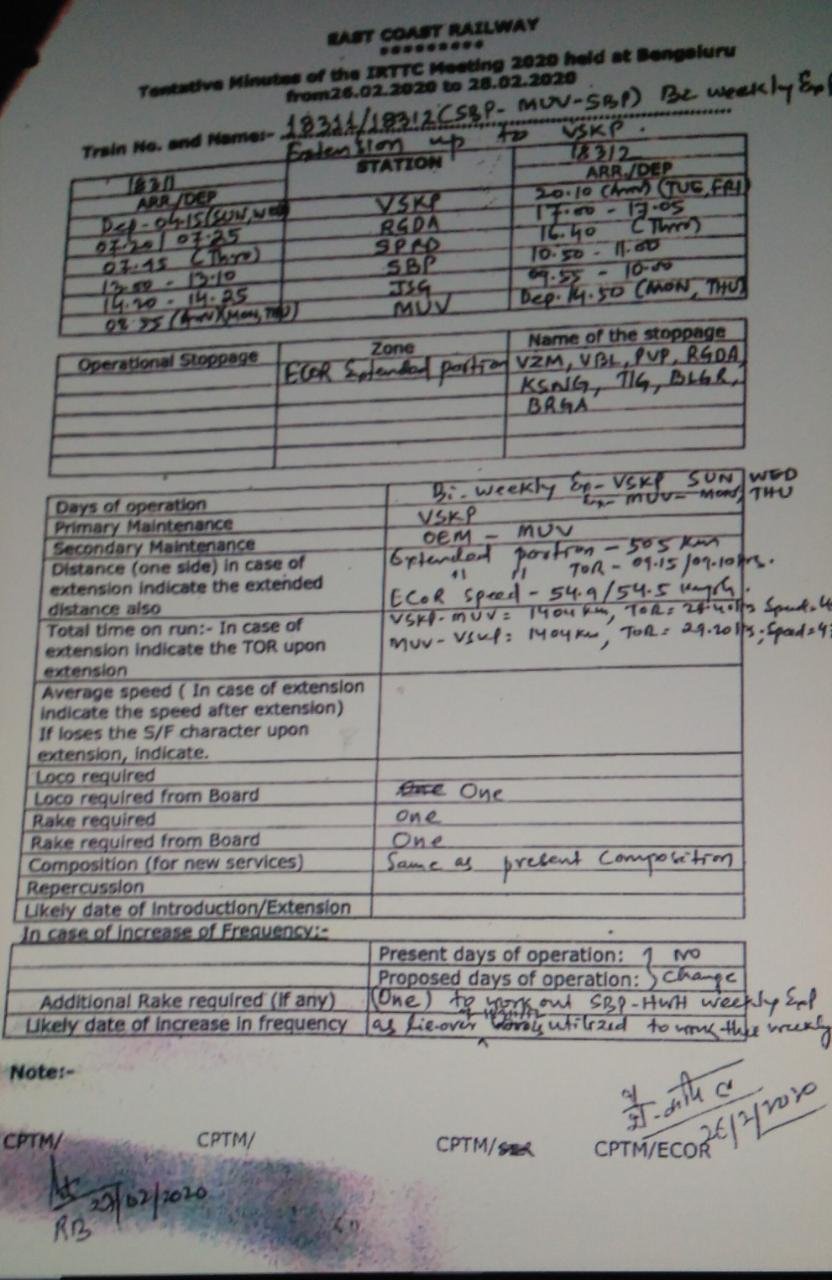 EAST COAST RAILWAY
*********
Tentative Minutes of the IRTTC Meeting 2020 held at Bengaluru
from26.02.2020 to 28.02.2020
Train No. and Name:- 18311/18312 (SBP- MUV-SBP) Bi weekly Exp
Extension up to VSKP.
18311 STATION 18312
ARR/DEP ARR./DEP
Dep-04.15 (SUN, WED) VSKP 20.10 (Arr) (TUE, FRI)
07.20/07.25 RGDA 17.00 - 17.05
07.45 (Thro) SPRD 16.40 (Thro)
13.00 - 13.10 SBP 10.50 - 11.00
14.20 - 14.25 JSG 09.55 - 10.00
08.55 (Arr) (Mon, THU) MUV Dep. 14.50 (MON, THU)
Operational Stoppage Zone Name of the stoppage
ECoR Extended portion VZM, VBL, PVP, RGDA,
KSNG, TIG, BLGR,
BRGA
Days of operation Bi-weekly Ex-VSKP SUN, WED
Ex-MUV- Mon, THU
Primary Maintenance VSKP
Secondary Maintenance OEM - MUV
Distance (one side) in case of extension indicate the extended distance also Extended portion - 505 Km
" " TOR - 09.15/09.10 hrs.
ECoR Speed - 54.9/54.5 kmph.
Total time on run:- In case of extension indicate the TOR upon extension VSKP-MUV = 1404 Km, TOR = 28.40 Hrs Speed=4
MUV-VSKP: 1404 Km, TOR = 29.20 Hrs; Speed=4
Average speed ( In case of extension
indicate the speed after extension)
If loses the S/F character upon
extension, indicate.
Loco required
Loco required from Board One
Rake required One
Rake required from Board One
Composition (for new services) Same as present Composition
Repercussion
Likely date of Introduction/Extension
In case of increase of Frequency:-
Present days of operation: } NO
Proposed days of operation: } Change
Additional Rake required (if any) (One) to work out SBP-HWH weekly Exp
Likely date of increase in frequency as lie-over utilized to work this weekly
Note:-
CPTM/ CPTM/ CPTM/ CPTM/ECOR
26/2/2020
27/02/2020
RB